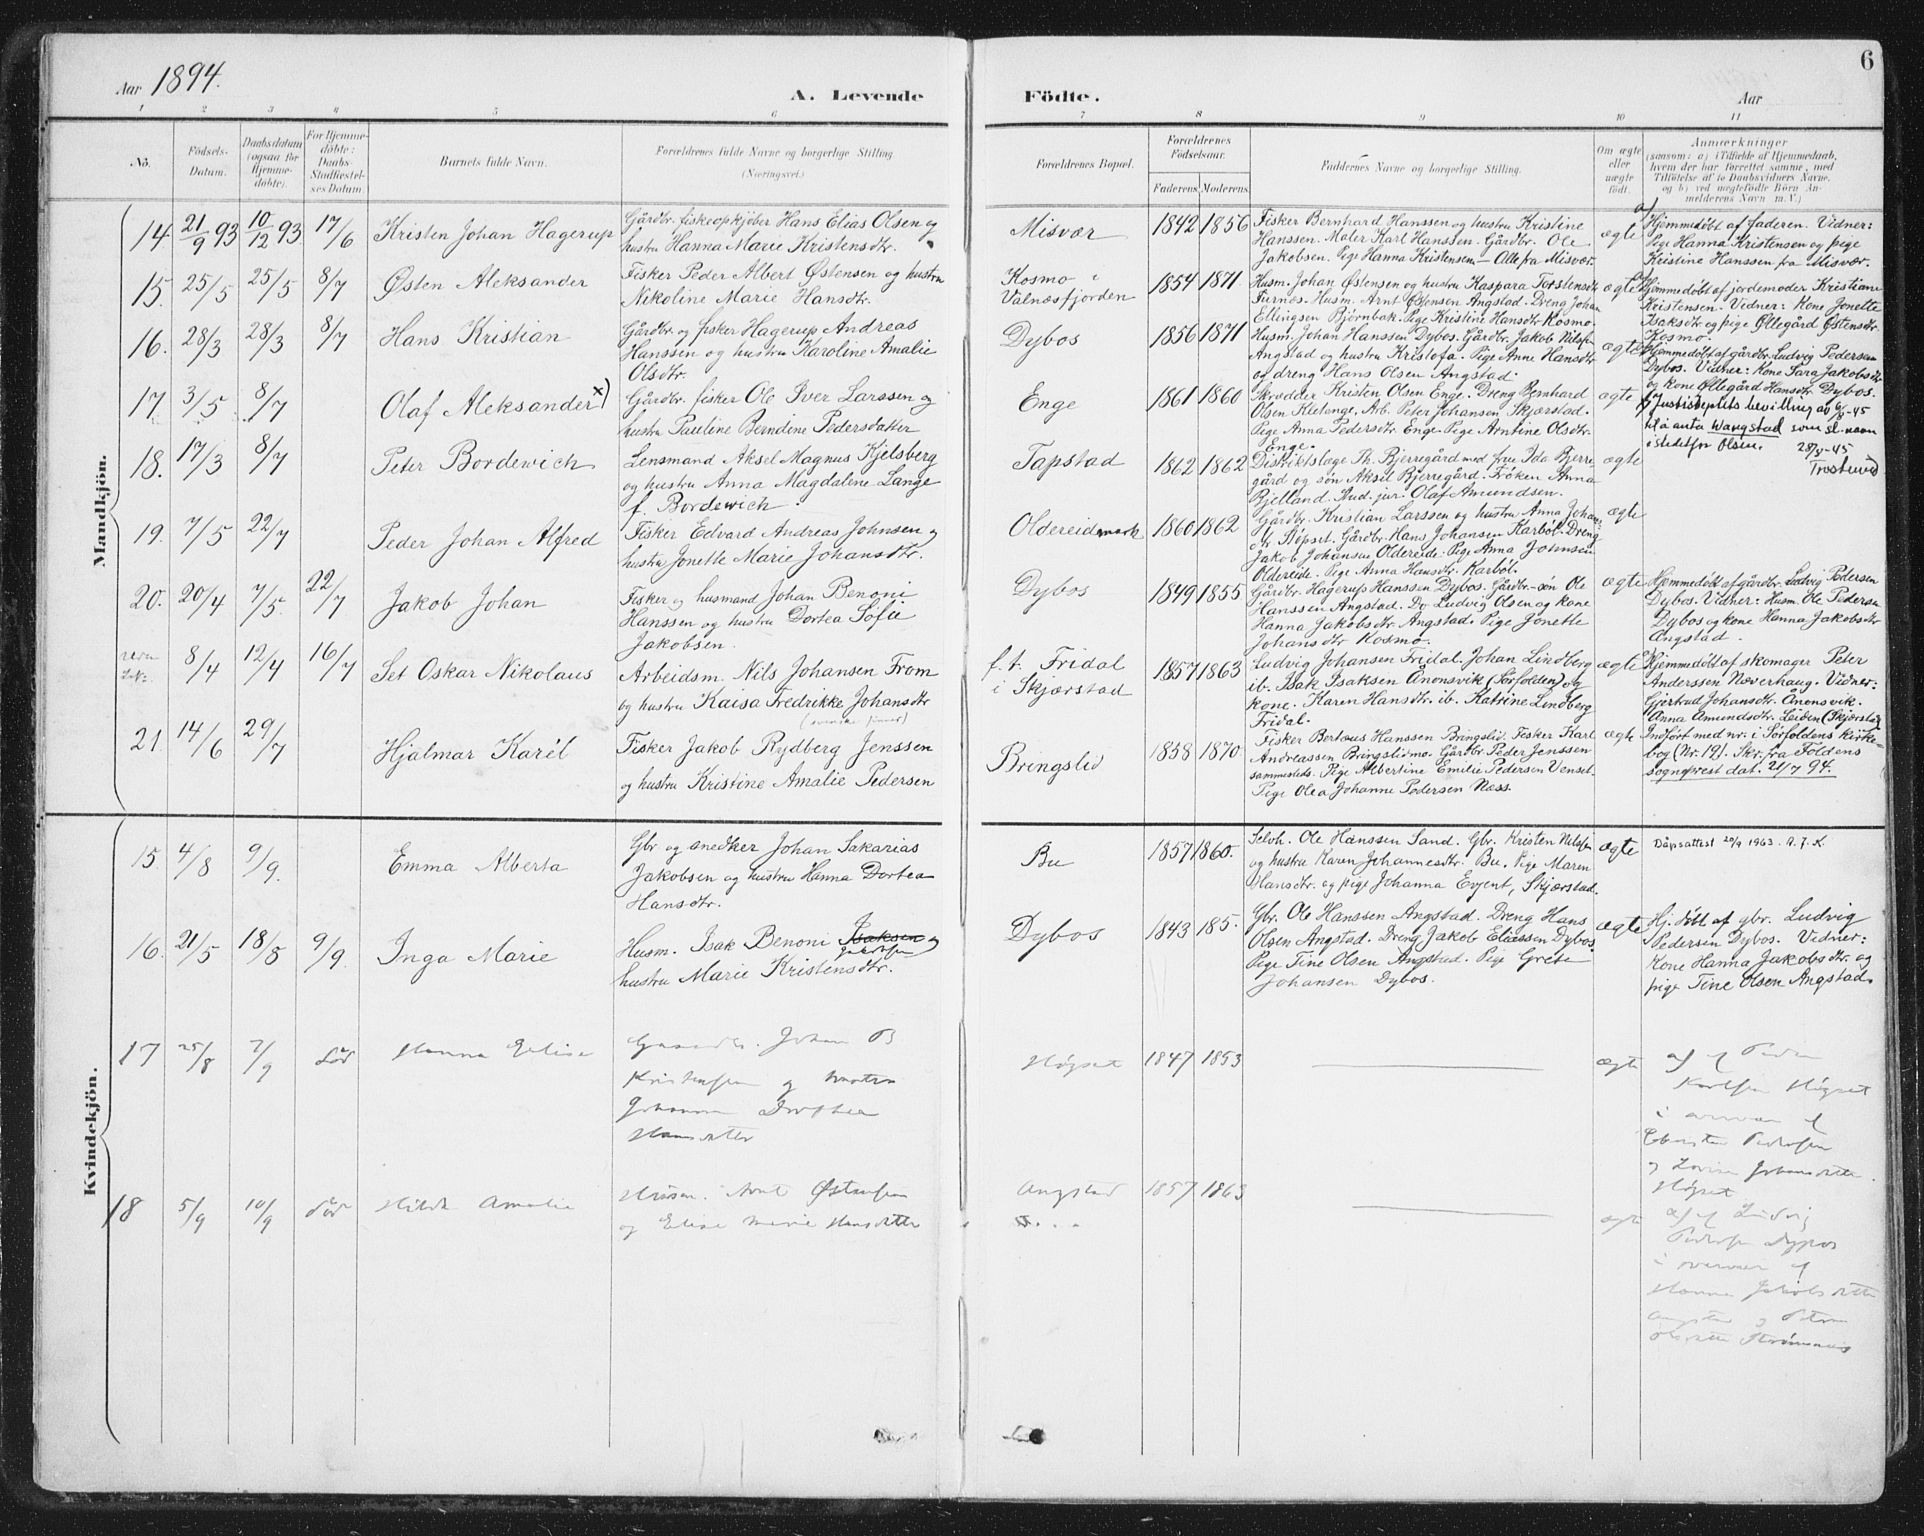 Aar 1894.
A. Levende
1 2 3 4 5 6
Nö.
Födsels-Datum.
Daabsdatum (ogsaa for Hjemmedöbte).
For Hjemmedöbte: Daabs-Stadfæstelses Datum
Barnets fulde Navn.
Forældrenes fulde Navne og borgerlige Stilling
(Næringsvei.)
Mandkjön.
14. 21/9 93 10/12 93 17/6 Kristen Johan Hagerup
Gårdbr. fiskeopkjøber Hans Elias Olsen og
hustru Hanna Marie Kristensdtr.
15. 25/5 25/5 8/7 Østen Aleksander
Fisker Peder Albert Østensen og hustru
Nikoline Marie Hansdtr.
16. 28/3 28/3 8/7 Hans Kristian
Gårdbr. og fisker Hagerup Andreas
Hanssen og hustru Karoline Amalie
Olsdtr.
17. 3/5 8/7 Olaf Aleksander x)
Gårdbr. fisker Ole Iver Larssen og
hustru Pauline Berndine Pedersdatter
18. 17/3 8/7 Peter Bordewich
Lensmand Aksel Magnus Kjelsberg
og hustru Anna Magdalene Lange
f. Bordewich.
19. 7/5 22/7 Peder Johan Alfred
Fisker Edvard Andreas Johnsen og
hustru Jonette Marie Johansdtr.
20. 20/4 7/5 22/7 Jakob Johan
Fisker og husmand Johan Benoni
Hanssen og hustru Dortea Sofie
Jakobsen.
8/4 12/4 16/7 Set Oskar Nikolaus
Arbeidsm. Nils Johansen From
og hustru Kaisa Fredrikke Johansdtr
(svenske finner)
21. 14/6 29/7 Hjalmar Karèl
Fisker Jakob Rydberg Jenssen
og hustru Kristine Amalie Pedersen
Kvindekjön.
15. 4/8 9/9. Emma Alberta
Gbr. og snedker Johan Sakarias
Jakobsen og hustru Hanna Dortea
Hansdtr.
16. 21/5 18/8 9/9. Inga Marie
Husm. Isak Benoni Isaksen og
Jakobsen
hustru Marie Kristensdtr.
17 25/8 2/9 død Hanna Elise
Johan B
Kristensen og hustru
Johanna Dorthea
Hansdatter
18 5/9 10/9 død Hilda Amalie
Husm. Arnt Østensen
og Elise Marie Hansdatter
Födte.
Aar
6
7 8 9 10 11
Forældrenes Bopæl.
Forældrenes Födselsaar.
Faderens. Moderens.
Faddernes Navne og borgerlige Stilling.
Om ægte eller uægte födt.
Anmærkninger
(saasom: a) i Tilfælde af Hjemmedaab,
hvem der har forrettet samme, med
Tilföielse af to Daabsvidners Navne,
og b) ved uægtefödte Börn An-
melderens Navn m. V.)
Misvær 1842 1856
Fisker Bernhard Hanssen og hustru Kristine
Hanssen. Maler Karl Hanssen. Gårdbr. Ole
Jakobsen. Pige Hanna Kristensen – Alle fra Misvær.
ægte
Hjemmedøbt af faderen. Vidner:
Pige Hanna Kristensen og pige
Kristine Hanssen fra Misvær.
Kosmo i
Valnesfjorden 1854 1871.
Husm. Johan Østensen og hustru Kaspara Torstensdtr
Furnes. Husm. Arnt Østensen Angstad. Dreng Johan
Ellingsen Bjørnbak. Pige Kristine Hansdtr Kosmo.
ægte
Hjemmedøbt af jordemoder Kristiane
Kristensen. Vidner: Kone Jonette
Isaksdtr og pige Øllegård Østensdtr.
Kosmo.
Dybos 1856 1871
Husm. Johan Hanssen Dybos. Gårdbr. Jakob Nilssen
Angstad og hustru Kristofa. Pige Anne Hansdtr
og dreng Hans Olsen Angstad.
ægte
Hjemmedøbt af gårdbr. Ludvig Pedersen
Dybos. Vidner: Kone Sara Jakobsdtr
og kone Øllegård Hansdtr Dybos.
Enge 1861 1860
Skrædder Kristen Olsen Enge. Dreng Bernhard
Olsen Kletenge. Arb. Peter Johansen Skjærstad.
Pige Anna Pedersdtr Enge. Pige Arntine Olsdtr.
Enge.
ægte
x) Justisdeptets bevilling av 6/8-45
til å anta Wangstad som sl.-navn
istedetfor Olsen. 28/8-45
Tapstad 1862 1862
Distriktslæge Th. Bjerregård med frue Ida Bjerre-
gård og søn Aksel Bjerregård. Frøken Anna
Bjelland. Stud. jur. Olaf Amundsen.
ægte
Oldereidmark 1860 1862
Gårdbr. Kristian Larssen og hustru Anna Johans-
dtr Støpset. Gårdbr. Hans Johansen Karbøl. Dreng
Jakob Johansen Oldereide. Pige Anna Johnsen
Oldereide. Pige Anna Hansdtr. Karbøl.
ægte
Dybos 1849 1855
Gårdbr. Hagerup Hanssen Dybos. Gårdbr.-søn Ole
Hanssen Angstad. Do Ludvig Olsen og kone
Hanna Jakobsdtr. Angstad. Pige Jonette
Johansdtr Kosmo.
ægte
Hjemmedøbt af gårdbr. Ludvig Pedersen
Dybos. Vidner: Husm. Ole Pedersen
Dybos og kone Hanna Jakobsdtr
Angstad.
f. t. Fridal
i Skjærstad 1857 1863
Ludvig Johansen Fridal. Johan Lindberg
ib. Isak Isaksen Anonsvik (Sörfolden) og
kone. Karen Hansdtr. ib. Katrine Lindberg
Fridal.
ægte
Hjemmedøbt af skomager Peter
Anderssen Næverhaug. Vidner:
Gjertrud Johansdtr. Anonsvik.
Anna Amundsdtr. Leiden (Skjærstad)
Indført med nr. i Sörfoldens kirke-
bog (Nr. 19). Skr. fra Foldens
sogneprest dat. 21/7 94.
Bringslid 1858 1870
Fisker Bertous Hanssen Bringslid. Fisker Karl
Andreassen Bringslidmo. Gårdbr. Peder Jenssen
sammesteds. Pige Albertine Emilie Pedersen Venset.
Pige Olea Johanne Pedersen Næss.
ægte
Bu 1857 1860.
Selvh. Ole Hanssen Sand. Gbr. Kristen Nilssen
og hustru Karen Johannesdtr. Bu. Pige Maren
Hansdtr. og pige Johanna Evjent, Skjærstad.
ægte
Dåpsattest 20/9 1963. A. J. K.
Dybos 1843 185.
Gbr. Ole Hanssen Angstad. Dreng Hans
Olsen Angstad. Dreng Jakob Eliassen Dybos.
Pige Tine Olsen Angstad. Pige Grete
Johansen Dybos.
ægte
Hj. døbt af gbr. Ludvig
Pedersen Dybos. Vidner:
Kone Hanna Jakobsdtr. og
pige Tine Olsen Angstad.
Høgset 1847 1853
ægte
Karlsen Høgset
Pedersen
og Lovise Johansdatter
Høgset
Angstad 1857 1863
ægte
af Ludvig
Pedersen Dybos
i overvær af
Hanna Jakobsdatter
Angstad og Petra
Olsdatter Strømsnes